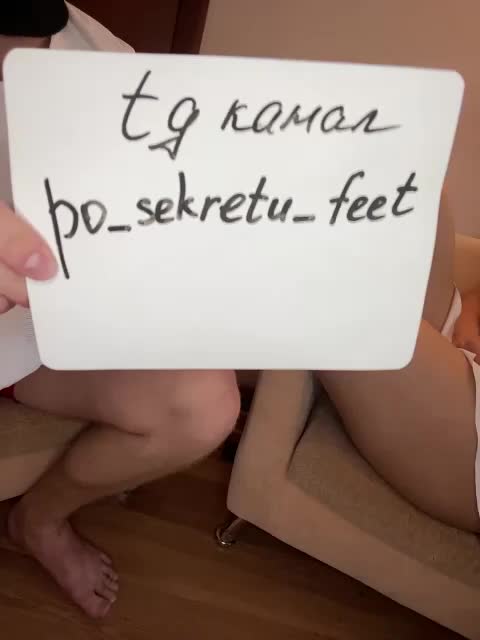 tg канал
po_sekretu_feet